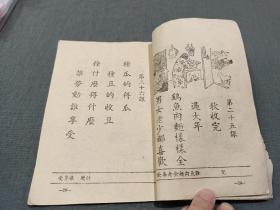 第二十五課
秋收完
過大年
鷄魚肉麵樣樣全
男女老少都喜歡
第二十六課
種瓜的得瓜
種豆的收豆
種什麼得什麼
誰勞動誰享受